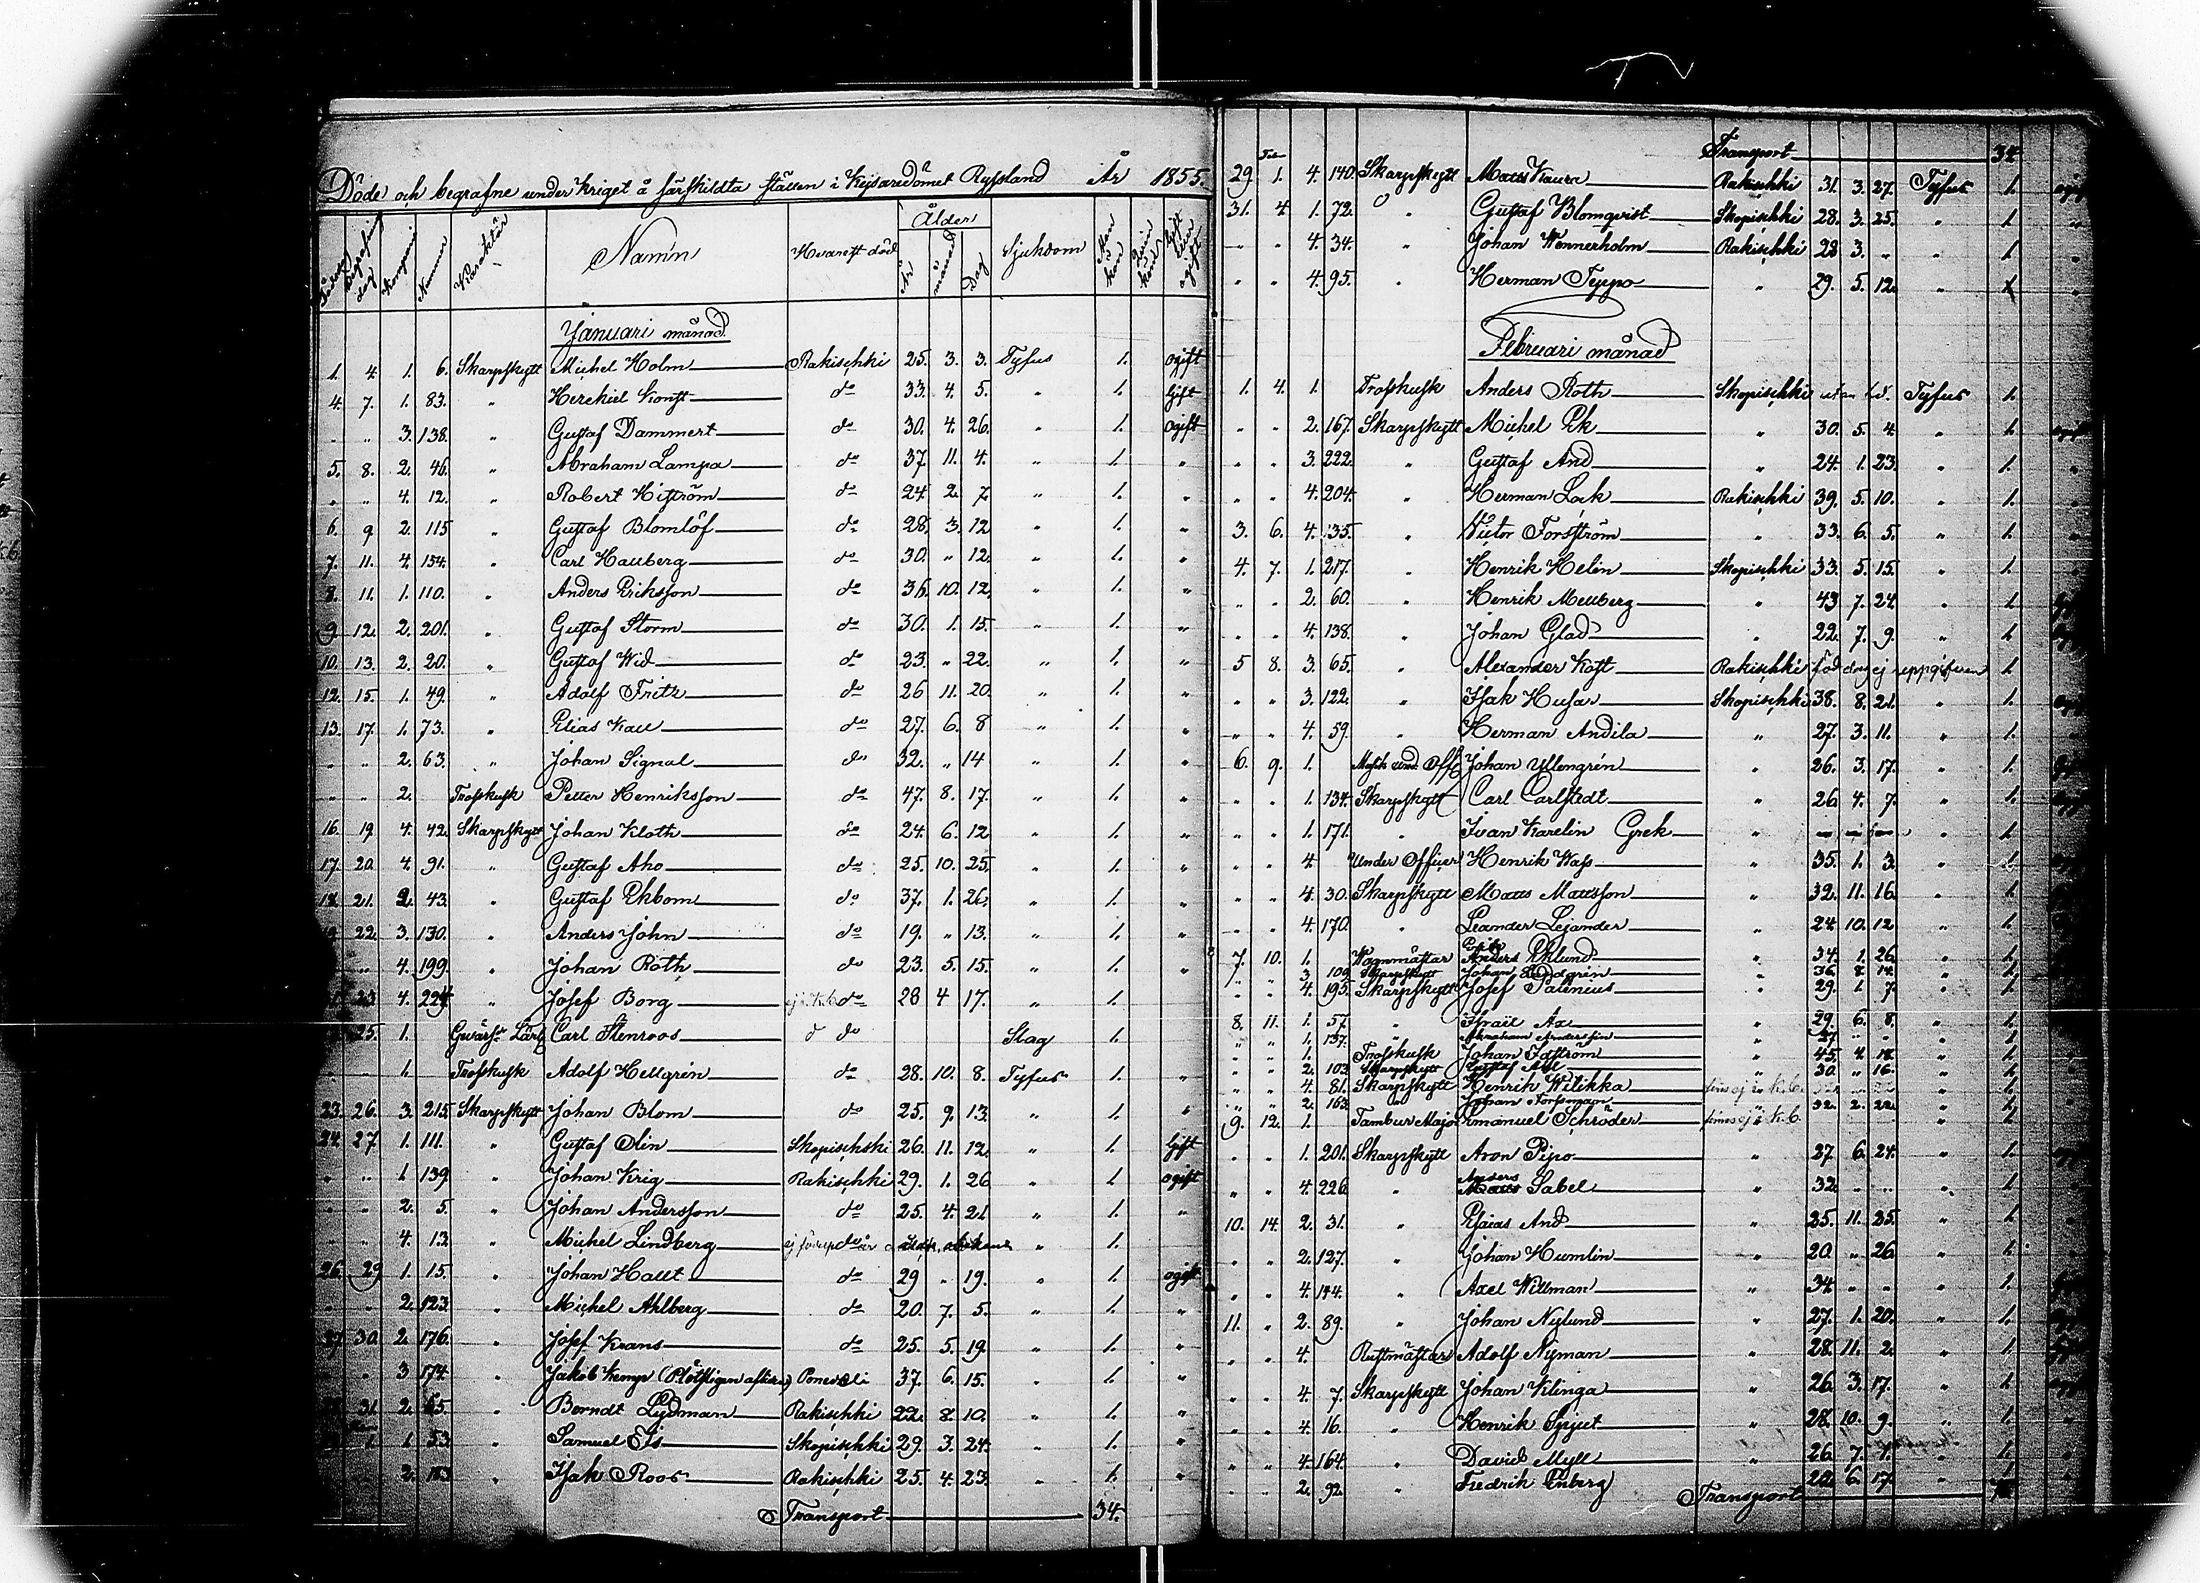 Döde och begrafne under kriget å särskildta ställen i Kejsaredömet Ryssland År 1855.
Namn Hvarest död Ålder Sjukdom
År månad Dag
Kompani Nummer Karaktär Man kön Gift eller ogift
Januari månad
1. 4. 1. 6. Skarpskytt Michel Holm Rakischki 25. 3. 3. Tyfus 1. ogift
4. 7. 1. 83. " Hezekiel Konst do 33. 4. 5. " 1. Gift
" " 3. 138. " Gustaf Dammert do 30. 4. 26. " 1. Ogift
5. 8. 2. 46. " Abraham Lampa do 37. 11. 4. " 1. "
" " 4. 12. " Robert Hiström do 24 2. 7. " 1. "
6. 9. 2. 115 " Gustaf Blomlöf do 28. 3. 12 " 1. "
7. 11. 4. 154. " Carl Hauberg do 30. " 12. " 1. "
8. 11. 1. 110. " Anders Eriksson do 36. 10. 12. " 1. "
9 12. 2. 201. " Gustaf Storm do 30. 1. 15. " 1. "
10. 13. 2. 20. " Gustaf Wid do 23. " 22. " 1. "
12. 15. 1. 49. " Adolf Fritz do 26 11. 20. " 1. "
13. 17. 1. 73. " Elias Kall do 27. 6. 8 " 1. "
" " 2. 63. " Johan Signal do 32. " 14 " 1. "
" " 2. Trosskusk Petter Henriksson do 47. 8. 17. " 1. "
16. 19. 4. 42. Skarpskytt Johan Kloth do 24. 6. 12 " 1. "
17. 20. 4. 91. " Gustaf Aho do 25. 10. 25. " 1. "
21. 2. 43. " Gustaf Ekbom do 37. 1. 26. " 1. "
22. 3. 130. " Anders John do 19. " 13. " 1. "
" 4. 199. " Johan Roth do 23. 5. 15. " 1. "
23 4. 224 " Josef Borg do 28 4 17. " 1.
25. 1. Carl Stenroos do Slag 1.
" 1. Trosskusk Adolf Hellgrén do 28. 10. 8. Tyfus 1. "
23. 26. 3. 215. Skarpskytt Johan Blom do 25. 9. 13. " 1. "
24. 27 1. 111. " Gustaf Olin Skopischski 26. 11. 12. " 1. Gift
" " 1. 139. " Johan Krig Rakischki 29. 1. 26 " 1. ogift
" " 2. 5. " Johan Andersson do 25. 4. 21 " 1. "
" " 4. 13. " Michel Lindberg do " 1.
26. 29 1. 15. " Johan Hallt do 29 " 19. " 1. ogift
" " 2. 123. " Michel Ahlberg do 20. 7. 5. " 1. "
27. 30. 2. 176. " Josef Krans do 25. 5. 19. " 1. "
" 3 174. " Jakob Kemp 37. 6. 15. " 1. "
31. 2. 65. " Berndt Lydman Rakischki 22. 8. 10. " 1. "
1. 1. 53. " Samuel Els Skopischki 29. 3. 24. " 1. "
2. " Isak Roos Rakischki 25. 4. 23. " 1. "
Transport 34.
Transport 34
29. 1. 4. 140. Skarpskytt Matts Kaura Rakischki 31. 3. 27. Tyfus 1.
31. 4 1. 72. " Gustaf Blomqvist Skopischki 28. 3. 25. " 1.
" " 4. 34. " Johan Wennerholm Rakischki 22 3. " " 1.
" " 4. 95. " Herman Teppo " 29. 5. 12. " 1
Februari månad
1. 4. 1. Trosskusk Anders Roth Skopischki Tyfus 1.
" " 2. 167. Skarpskytt Michel Ek " 30. 5. 4. " 1.
" " 3. 222. " Gustaf And " 24. 1. 23. " 1.
" " 4. 204. " Herman Lock Rakischki 39. 5. 10. " 1.
3. 6. 4. 135. " Victor Forsström " 33. 6. 5. " 1.
4. 7. 1. 217. " Henrik Helin Skopischki 33. 5. 15. " 1.
" " 2. 60. " Henrik Mellberg " 43 7. 24. " 1.
" " 4. 138. " Johan Glad " 22. 7. 9. " 1.
5 8. 3. 65. " Alexander Kost Rakischki 1.
" " 3. 122. " Isak Husar Skopischki 38. 8. 21. " 1.
" " 4. 59. " Herman Andila " 27. 3. 11. " 1.
6. 9. 1. Musik und. Off. Johan Ullengrén " 26. 3. 17. " 1.
" " 1. 134. Skarpskytt Carl Carlstedt " 26 4. 7. " 1.
" " 1. 171. " Ivan Karelin Grek " " 1.
" " 4. Under Officer Henrik Wass " 35. 1. 3. " 1.
" " 4. 30. Skarpskytt Matts Mattsson " 32. 11. 16. " 1.
" " 4. 170. " Leander Lejander " 24. 10. 12 " 1.
7. 10. 1. Wagnmästar Anders Eklund " 34. 1. 26. " 1.
" " 3. 109. Skarpskytt Johan " 36. 8. 14. " 1.
" " 4. 195. Skarpskytt Josef Palenius " 29. 1. 7. " 1.
8. 11. 1. 57. " Israel Ax " 29. 6. 8. " 1.
" " 1. 137. " Abraham Andersson " 27 " " " 1.
" " 1. Trosskusk Johan Idström " 45. 4. 18. " 1.
" " 2. 103. Skarpskytt Gustaf " 30. " 16. " 1.
" " 4. 81. Skarpskytt Henrik Wilikka 1.
" " 2. 163. " Johan Forssman " 32. 2. 22. " 1.
9. 12. 1. Tambur Major Emanuel Schröder finns ej i K.B. 1.
" " 1. 201. Skarpskytt Aron Pipo " 27 6. 24. " 1.
Anders
" " 4. 226. " Matts Sabel " 32. " " " 1.
10. 14. 2. 31. " Esaias And " 25. 11. 25. " 1.
" " 2. 127. " Johan Humlin " 20. " 26. " 1.
" " 4. 144. " Axel Willman " 34. " " " 1.
11. " 2. 89. " Johan Nylund " 27. 1. 20. " 1.
" " 4. Rustmästar Adolf Nyman " 28. 11. 2. " 1.
" " 4. 7. Skarpskytt Johan Klinga " 26. 3. 17. " 1.
" " 4. 16. " Henrik Spjut " 28. 10. 9. " 1.
" " 4. 164. " David Myll " 26. 7. 1. " 1.
" " 2. 92. " Fredrik Enberg 6. 17. " 1.
Transport